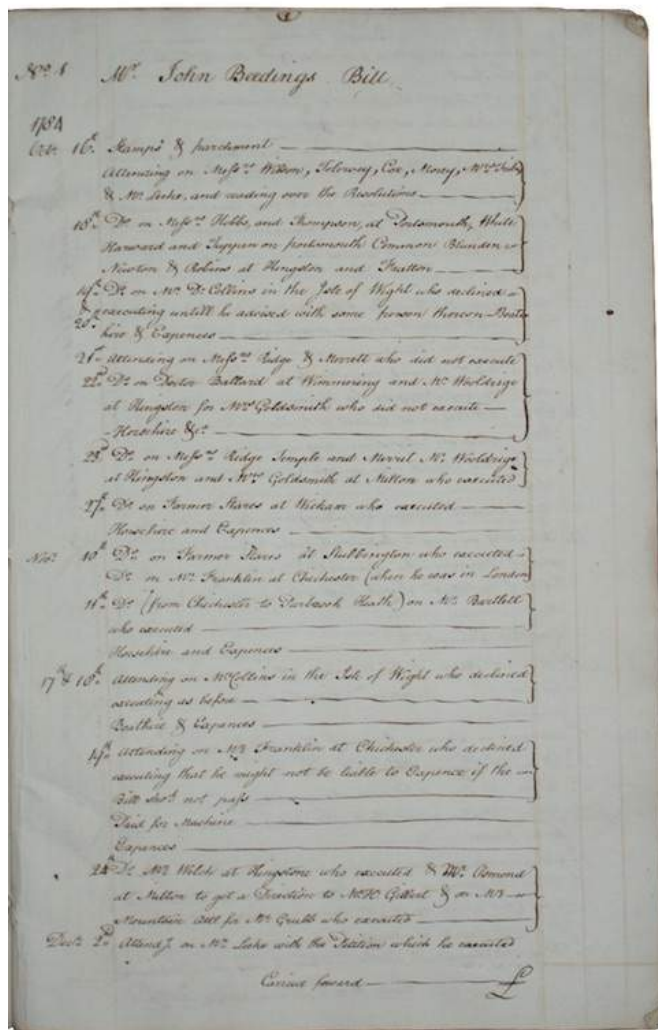 No. 1 Mr. John Beedings Bill
1784
Oct. 16th. Stamps & parchment
Attending on Messrs. Cox, Money,
& Mr. Leeke, and reading over the Resolutions
18th. Do. on Messrs. Hobbs, and Thompson, at Portsmouth, White
Harward and on portsmouth Common Blunden
Newton & Robins at Kingston and Fratton
19th. Do. on Mr. Dr. Collins in the Isle of Wight who declined
& 20th. executing untill he advised with some person thereon Boat
hire & Expences
21st. Attending on Messrs. Ridge & Merrett who did not execute
22d. Do. on Doctor Ballard at Wimmering and Mr. Wooldrige
at Kingston for Mrs. Goldsmith who did not execute
Horsehire &c.
23d. Do. on Messrs. Ridge Temple and Merril Mr. Wooldrige
at Kingston and Mrs. Goldsmith at Milton who executed
27th. Do. on Farmer Stares at Wickam who executed
Horsehire and Expences
Novr. 10th. Do. on Farmer Stares at Stubbington who executed
Do. on Mr. Franklin at Chichester (when he was in London
11th. Do. (from Chichester to Purbrook Heath) on Mr. Bartlett
who executed
Horsehire and Expences
17th & 18th. Attending on Mr. Collins in the Isle of Wight who declined
executing as before
Boathire & Expences
19th. Attending on Mr. Franklin at Chichester who declined
executing that he might not be liable to Expence if the
Bill shod. not pass
Paid for Machine
Expences
24th. Do. Mr. Welch at Kingstone who executed & Mr. Osmond
at Milton to get a Direction to Mr. Gilbert & on Mr.
Mountain for Mr. Grubb who executed
Decr. 2d. Attendg. on Mr. Leeke with the Petition which he executed
Carried forward £